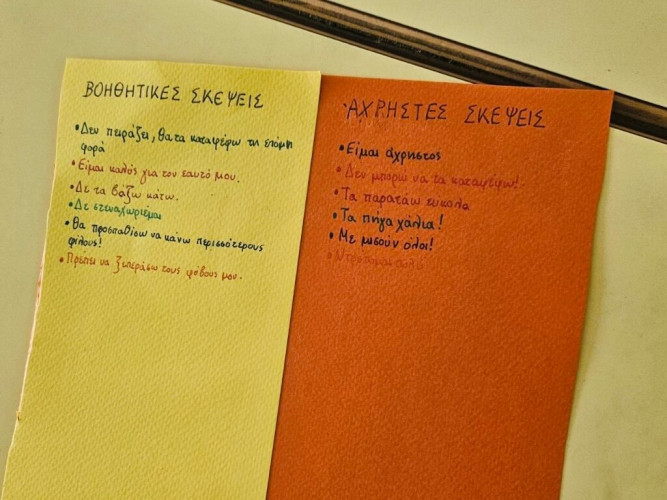 ΒΟΗΘΗΤΙΚΕΣ ΣΚΕΨΕΙΣ
• Δεν πειράζει, θα τα καταφέρω τη επόμη
φορά
• Είμαι καλός για τον εαυτό μου.
• Δε τα βάζω κάτω.
• Δε στεναχωριέμαι
• Θα προσπαθήσω να κάνω περισσότερους
φίλους!
• Πρέπει να ξεπεράσω τους φόβους μου.
ΑΧΡΗΣΤΕΣ ΣΚΕΨΕΙΣ
• Είμαι άχρηστος
• Δεν μπορώ να τα καταφέρω!
• Τα παρατάω εύκολα
• Τα πήγα χάλια!
• Με μισούν όλοι!
• Ντρέπομαι πολύ